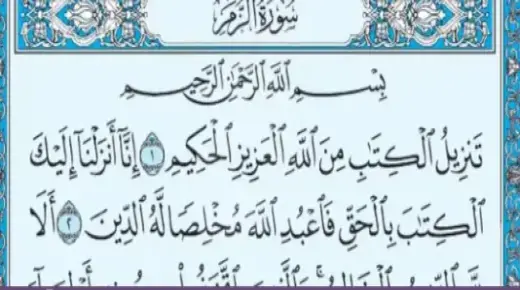 سُورَةُ الزُّمَرِ
بِسْمِ اللَّهِ الرَّحْمَٰنِ الرَّحِيمِ
تَنزِيلُ الْكِتَٰبِ مِنَ اللَّهِ الْعَزِيزِ الْحَكِيمِ ١ إِنَّآ أَنزَلْنَآ إِلَيْكَ
الْكِتَٰبَ بِالْحَقِّ فَاعْبُدِ اللَّهَ مُخْلِصًا لَّهُ الدِّينَ ٢ أَلَا